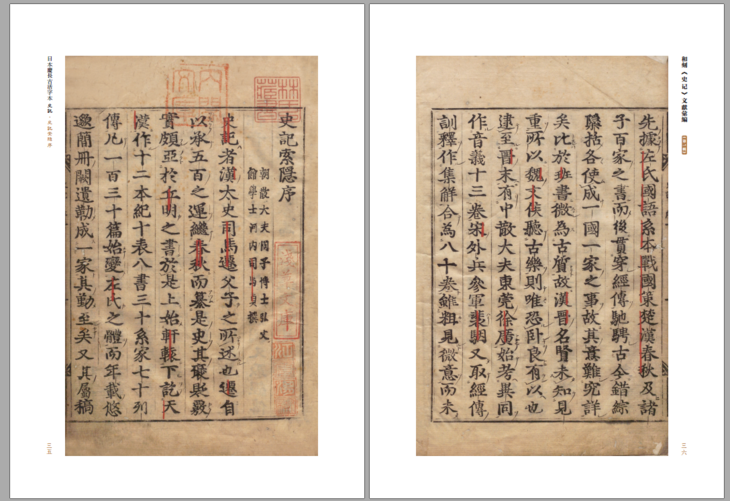 日本慶長古活字本史記·史記索隱序
林氏藏書
史記索隱序
朝散大夫國子博士弘文
館學士河内司馬貞撰
史記者漢太史司馬遷父子之所述也遷自
以承五百之運繼春秋而纂是史其襃貶覈
實頗亞於丘明之書於是上始軒轅下訖天
漢作十二本紀十表八書三十系家七十列
傳凡一百三十篇始變左氏之體而年載悠
邈簡冊闕遺勒成一家其勤至矣又其屬稿
三五
和刻《史记》文獻彙編
先據左氏國語系本戰國策楚漢春秋及諸
子百家之書而後貫穿經傳馳騁古今錯綜
隱括各使成一國一家之事故其意難究詳
矣比於班書微為古質故漢晉名賢未知見
重所以魏文侯聽古樂則唯恐卧良有以也
逮至晉末有中散大夫東莞徐廣始考異同
作音義十三卷宋外兵參軍裴駰又取經傳
訓釋作集解合為八十卷雖粗見微意而未
三六